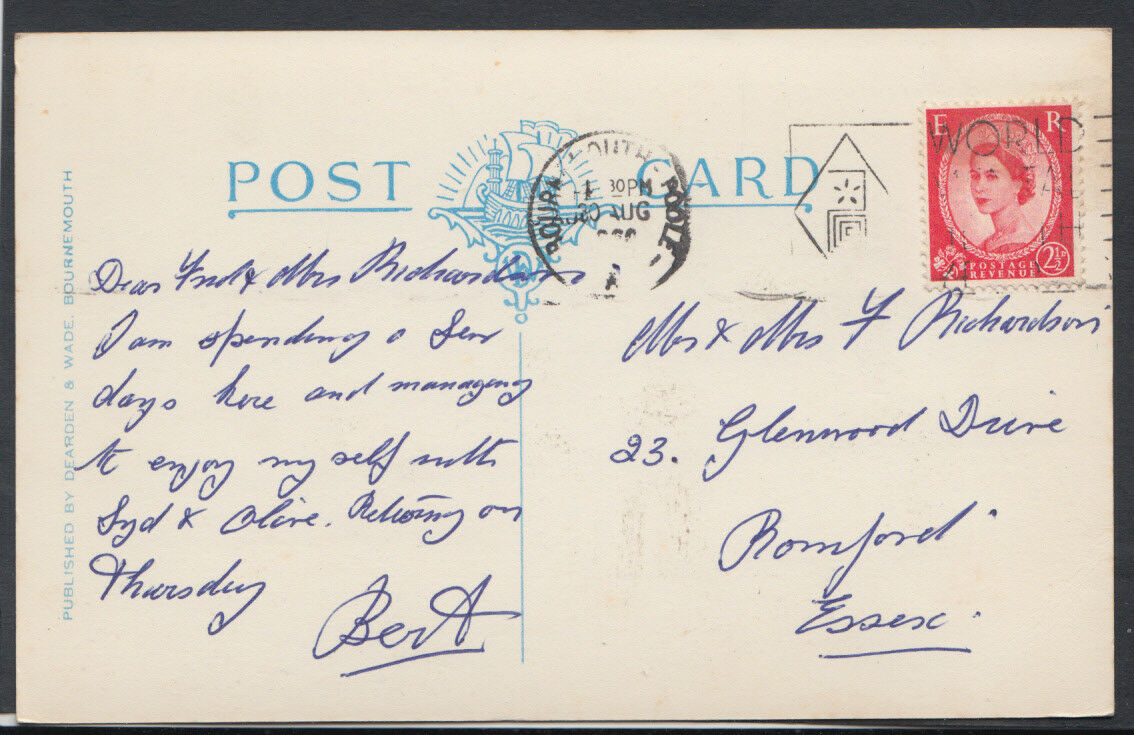 POST CARD
PUBLISHED BY DEARDEN & WADE, BOURNEMOUTH
BOURNEMOUTH POOLE
30PM
AUG
WORLD
E R
POSTAGE
REVENUE
2½D
Dear Fred & Mrs Richardson
I am spending a few
days here and managing
to enjoy my self with
Syd & Olive. Returning on
Thursday
Bert
Mr & Mrs F Richardson
23. Glenwood Drive
Romford
Essex.